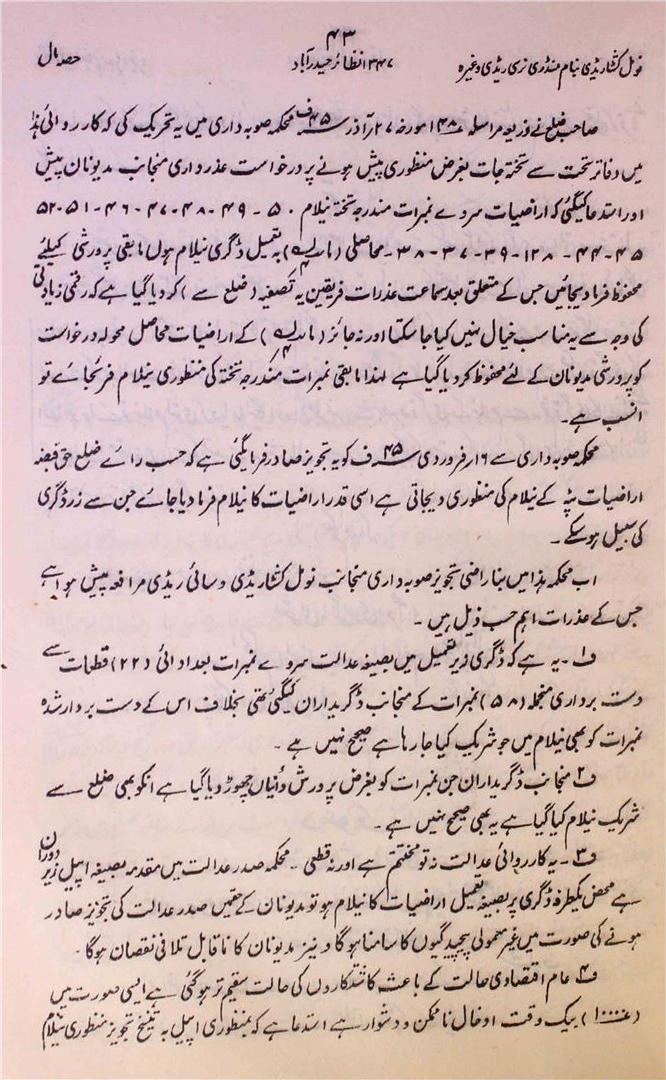 ۴۳
نومل کشتا ریڈی بنام منڈری نرسی ریڈی وغیرہ ۱۳۴۷ نظائر حیدرآباد حصہ مال
صاحب ضلع نے ذریعہ مراسلہ ۱۴۸ مورخہ ۲۷ آذر ۴۵ ف محکمہ صوبہ داری میں یہ تحریک کی کہ کارروائی ہذا
میں دفاتر تحت سے تختہ جات بغرض منظوری پیش ہونے پر درخواست عذرداری منجانب مدیونان پیش
اور استدعا کیگئی کہ اراضیات سروے نمبرات مندرجہ تختہ نیلام ۵۰ - ۴۹ - ۴۸ - ۴۷ - ۴۶ - ۵۱ - ۵۲
۴۵ - ۴۴ - ۱۲۸ - ۳۹ - ۳۷ - ۳۸ - محاصلی بہ تعمیل ڈگری نیلام ہوں مابقی پرورشی کیلئے
محفوظ فرما دیجائیں جس کے متعلق بعد سماعت عذرات فریقین یہ تصفیہ (ضلع سے) کر دیا گیا ہے کہ رقمی زیادتی
کی وجہ سے یہ مناسب خیال نہیں کیا جا سکتا اور نہ جائز کے اراضیات محاصل محولہ درخواست
کو پرورشی مدیونان کے لئے محفوظ کر دیا گیا ہے لہذا مابقی نمبرات مندرجہ تختہ کی منظوری نیلام فرمائجائے تو
انسب ہے۔
محکمہ صوبہ داری سے ۱۶ فروردی ۴۵ ف کو یہ تجویز صادر فرمائیگئی ہے کہ حسب رائے ضلع حق قبضہ
اراضیات پٹہ کے نیلام کی منظوری دیجاتی ہے اسی قدر اراضیات کا نیلام فرما دیا جائے جن سے زر ڈگری
کی سبیل ہو سکے۔
اب محکمہ ہذا میں بناراضی تجویز صوبہ داری منجانب نومل کشتا ریڈی و سائی ریڈی مرافعہ پیش ہوا ہے
جس کے عذرات اہم حسب ذیل ہیں۔
ف ۱ - یہ ہے کہ ڈگری زیر تعمیل میں بصیغہ عدالت سروے نمبرات بعدادائی (۲۲) قطعات سے
دست برداری منجملہ (۵۸) نمبرات کے منجانب ڈگریداران کیگئی تھی بخلاف اس کے دست بردار شدہ
نمبرات کو بھی نیلام میں جو شریک کیا جا رہا ہے صحیح نہیں ہے۔
ف ۲ منجانب ڈگریداران جن نمبرات کو بغرض پرورش مدیونان چھوڑ دیا گیا ہے انکو بھی ضلع سے
شریک نیلام کیا گیا ہے یہ بھی صحیح نہیں ہے۔
ف ۳ - یہ کارروائی عدالت نہ تو مختتم ہے اور نہ قطعی۔ محکمہ صدر عدالت میں مقدمہ بصیغہ اپیل زیر دوران
ہے محض یکطرفہ ڈگری پر بصیغہ تعمیل اراضیات کا نیلام ہو تو مدیونان کے حق میں صدر عدالت کی تجویز صادر
ہونے کی صورت میں غیر معمولی پیچیدگیوں کا سامنا ہوگا و نیز مدیونان کا ناقابل تلافی نقصان ہوگا۔
ف ۴ عام اقتصادی حالت کے باعث کاشتکاروں کی حالت سقیم تر ہو گئی ہے ایسی صورت میں
(۱۰۰۰) بیک وقت ادخال ناممکن و دشوار ہے استدعا ہے کہ بمنظوری اپیل بہ تنسیخ تجویز منظوری نیلام